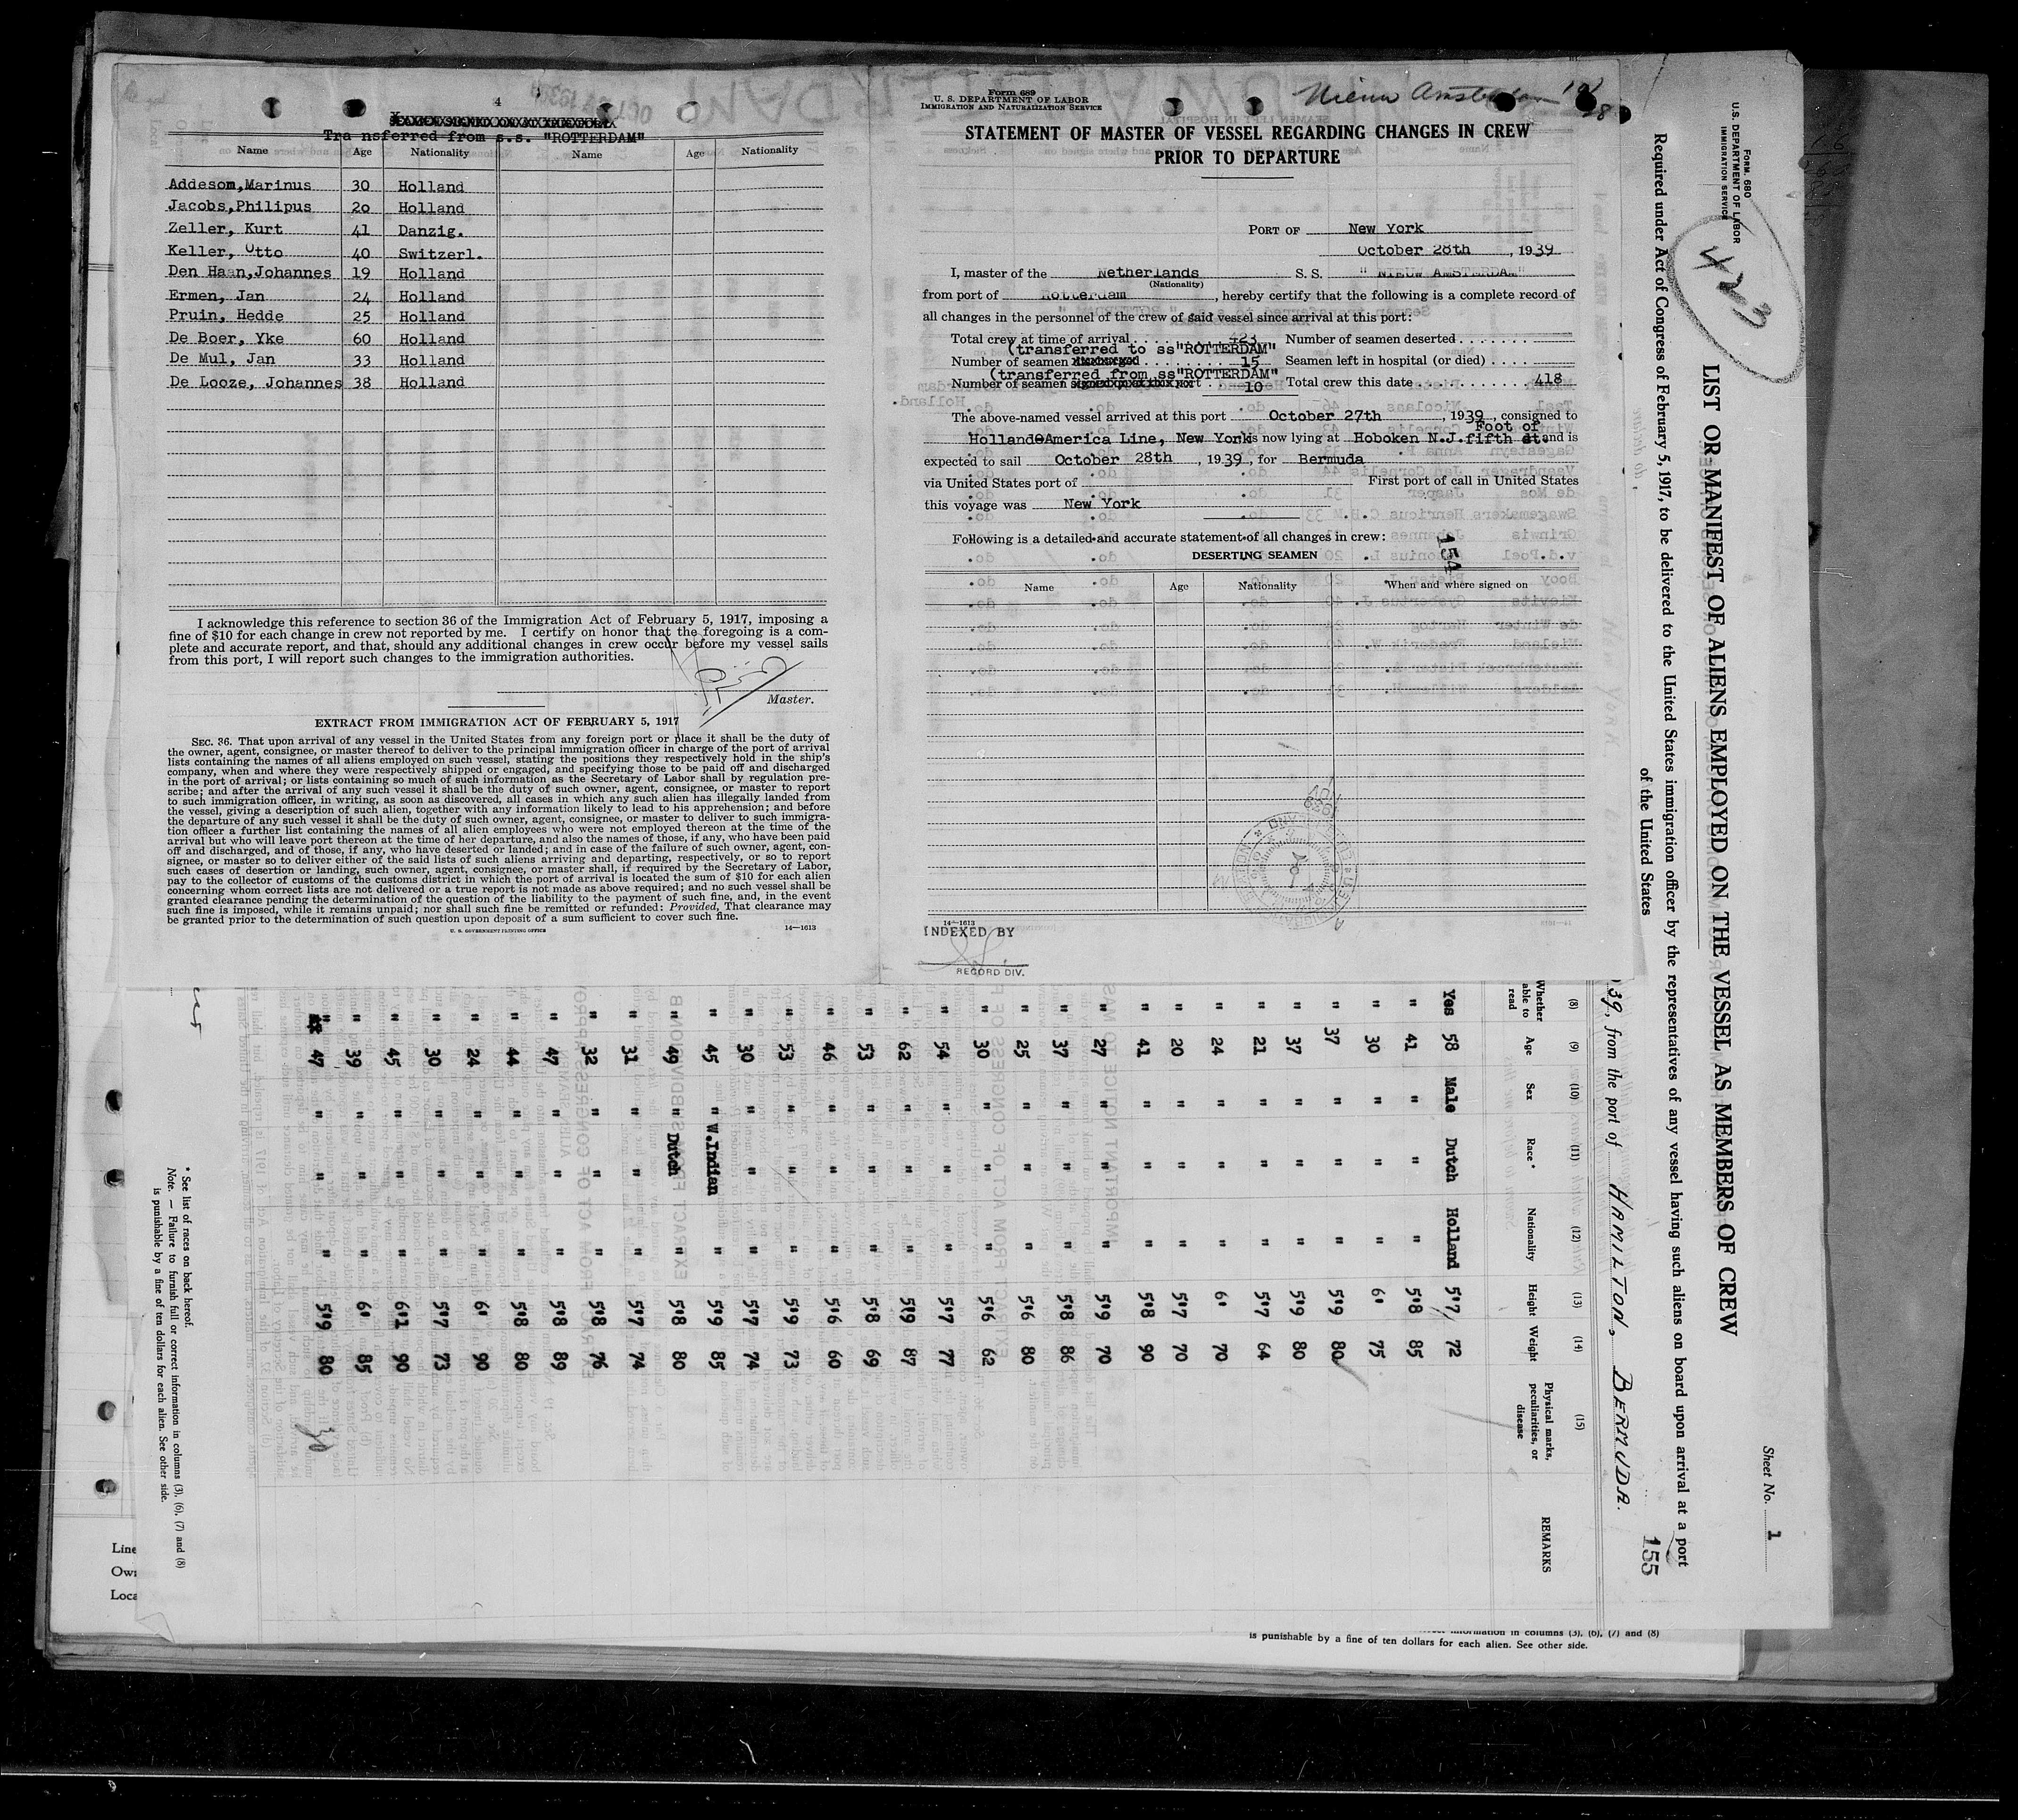 4
Transferred from s.s. "ROTTERDAM"
Name Age Nationality Name Age Nationality
Addesom,Marinus 30 Holland
Jacobs,Philipus 2o Holland
Zeller, Kurt 41 Danzig.
Keller, Otto 40 Switzerl.
Den Haan,Johannes 19 Holland
Ermen, Jan 24 Holland
Pruin, Hedde 25 Holland
De Boer, Yke 60 Holland
De Mul, Jan 33 Holland
De Looze, Johannes 38 Holland
I acknowledge this reference to section 36 of the Immigration Act of February 5, 1917, imposing a
fine of $10 for each change in crew not reported by me. I certify on honor that the foregoing is a com-
plete and accurate report, and that, should any additional changes in crew occur before my vessel sails
from this port, I will report such changes to the immigration authorities.
Master.
EXTRACT FROM IMMIGRATION ACT OF FEBRUARY 5, 1917
SEC. 36. That upon arrival of any vessel in the United States from any foreign port or place it shall be the duty of
the owner, agent, consignee, or master thereof to deliver to the principal immigration officer in charge of the port of arrival
lists containing the names of all aliens employed on such vessel, stating the positions they respectively hold in the ship's
company, when and where they were respectively shipped or engaged, and specifying those to be paid off and discharged
in the port of arrival; or lists containing so much of such information as the Secretary of Labor shall by regulation pre-
scribe; and after the arrival of any such vessel it shall be the duty of such owner, agent, consignee, or master to report
to such immigration officer, in writing, as soon as discovered, all cases in which any such alien has illegally landed from
the vessel, giving a description of such alien, together with any information likely to lead to his apprehension; and before
the departure of any such vessel it shall be the duty of such owner, agent, consignee, or master to deliver to such immigra-
tion officer a further list containing the names of all alien employees who were not employed thereon at the time of the
arrival but who will leave port thereon at the time of her departure, and also the names of those, if any, who have been paid
off and discharged, and of those, if any, who have deserted or landed; and in case of the failure of such owner, agent, con-
signee, or master so to deliver either of the said lists of such aliens arriving and departing, respectively, or so to report
such cases of desertion or landing, such owner, agent, consignee, or master shall, if required by the Secretary of Labor,
pay to the collector of customs of the customs district in which the port of arrival is located the sum of $10 for each alien
concerning whom correct lists are not delivered or a true report is not made as above required; and no such vessel shall be
granted clearance pending the determination of the question of the liability to the payment of such fine, and, in the event
such fine is imposed, while it remains unpaid; nor shall such fine be remitted or refunded: Provided, That clearance may
be granted prior to the determination of such question upon deposit of a sum sufficient to cover such fine.
U. S. GOVERNMENT PRINTING OFFICE 14—1613
Form 689
U. S. DEPARTMENT OF LABOR
IMMIGRATION AND NATURALIZATION SERVICE
Nieuw Amsterdam
STATEMENT OF MASTER OF VESSEL REGARDING CHANGES IN CREW
PRIOR TO DEPARTURE
PORT OF New York
October 28th , 1939
I, master of the Netherlands S. S. " NIEUW AMSTERDAM"
(Nationality)
from port of Rotterdam , hereby certify that the following is a complete record of
all changes in the personnel of the crew of said vessel since arrival at this port:
Total crew at time of arrival 423 Number of seamen deserted
(transferred to ss"ROTTERDAM"
Number of seamen 15 Seamen left in hospital (or died)
(transferred from ss"ROTTERDAM"
Number of seamen signed on at this port 10 Total crew this date 418
The above-named vessel arrived at this port October 27th , 1939 , consigned to
Foot of
Holland-America Line, New York is now lying at Hoboken N.J. fifth st. and is
expected to sail October 28th , 1939 , for Bermuda
via United States port of First port of call in United States
this voyage was New York
Following is a detailed and accurate statement of all changes in crew:
154
DESERTING SEAMEN
Name Age Nationality *When and where signed on
14—1613
INDEXED BY
RECORD DIV.
Form. 680
U.S. DEPARTMENT OF LABOR
IMMIGRATION SERVICE
423
Sheet No. 1
LIST OR MANIFEST OF ALIENS EMPLOYED ON THE VESSEL AS MEMBERS OF CREW
Required under Act of Congress of February 5, 1917, to be delivered to the United States immigration officer by the representatives of any vessel having such aliens on board upon arrival at a port
of the United States
155
39, from the port of HAMILTON, BERMUDA.
(8) (9) (10) (11) (12) (13) (14) (15)
Whether able to read Age Sex Race * Nationality Height Weight Physical marks, peculiarities, or disease REMARKS
Yes 58 Male Dutch Holland 5'7 72
" 41 " " " 5'8 85
" 30 " " " 6' 75
" 37 " " " 5'9 80
" 37 " " " 5'9 80
" 21 " " " 5'7 64
" 24 " " " 6' 70
" 20 " " " 5'7 70
" 41 " " " 5'8 90
" 27 " " " 5'9 70
" 37 " " " 5'8 86
" 25 " " " 5'6 80
" 30 " " " 5'6 62
" 54 " " " 5'7 77
" 62 " " " 5'9 87
" 53 " " " 5'8 69
" 46 " " " 5'6 60
" 53 " " " 5'9 73
" 30 " " " 5'7 74
" 45 " W.Indian " 5'9 85
" 49 " Dutch " 5'8 80
" 31 " " " 5'7 74
" 32 " " " 5'8 76
" 47 " " " 5'8 89
" 44 " " " 5'8 80
" 24 " " " 6' 90
" 30 " " " 5'7 73
" 45 " " " 6'1 90
" 39 " " " 6' 85
" 47 " " " 5'9 80
* See list of races on back hereof.
Note. — Failure to furnish full or correct information in columns (3), (6), (7) and (8)
is punishable by a fine of ten dollars for each alien. See other side.
Line
Own
Loca
information in columns (3), (6), (7) and (8)
is punishable by a fine of ten dollars for each alien. See other side.